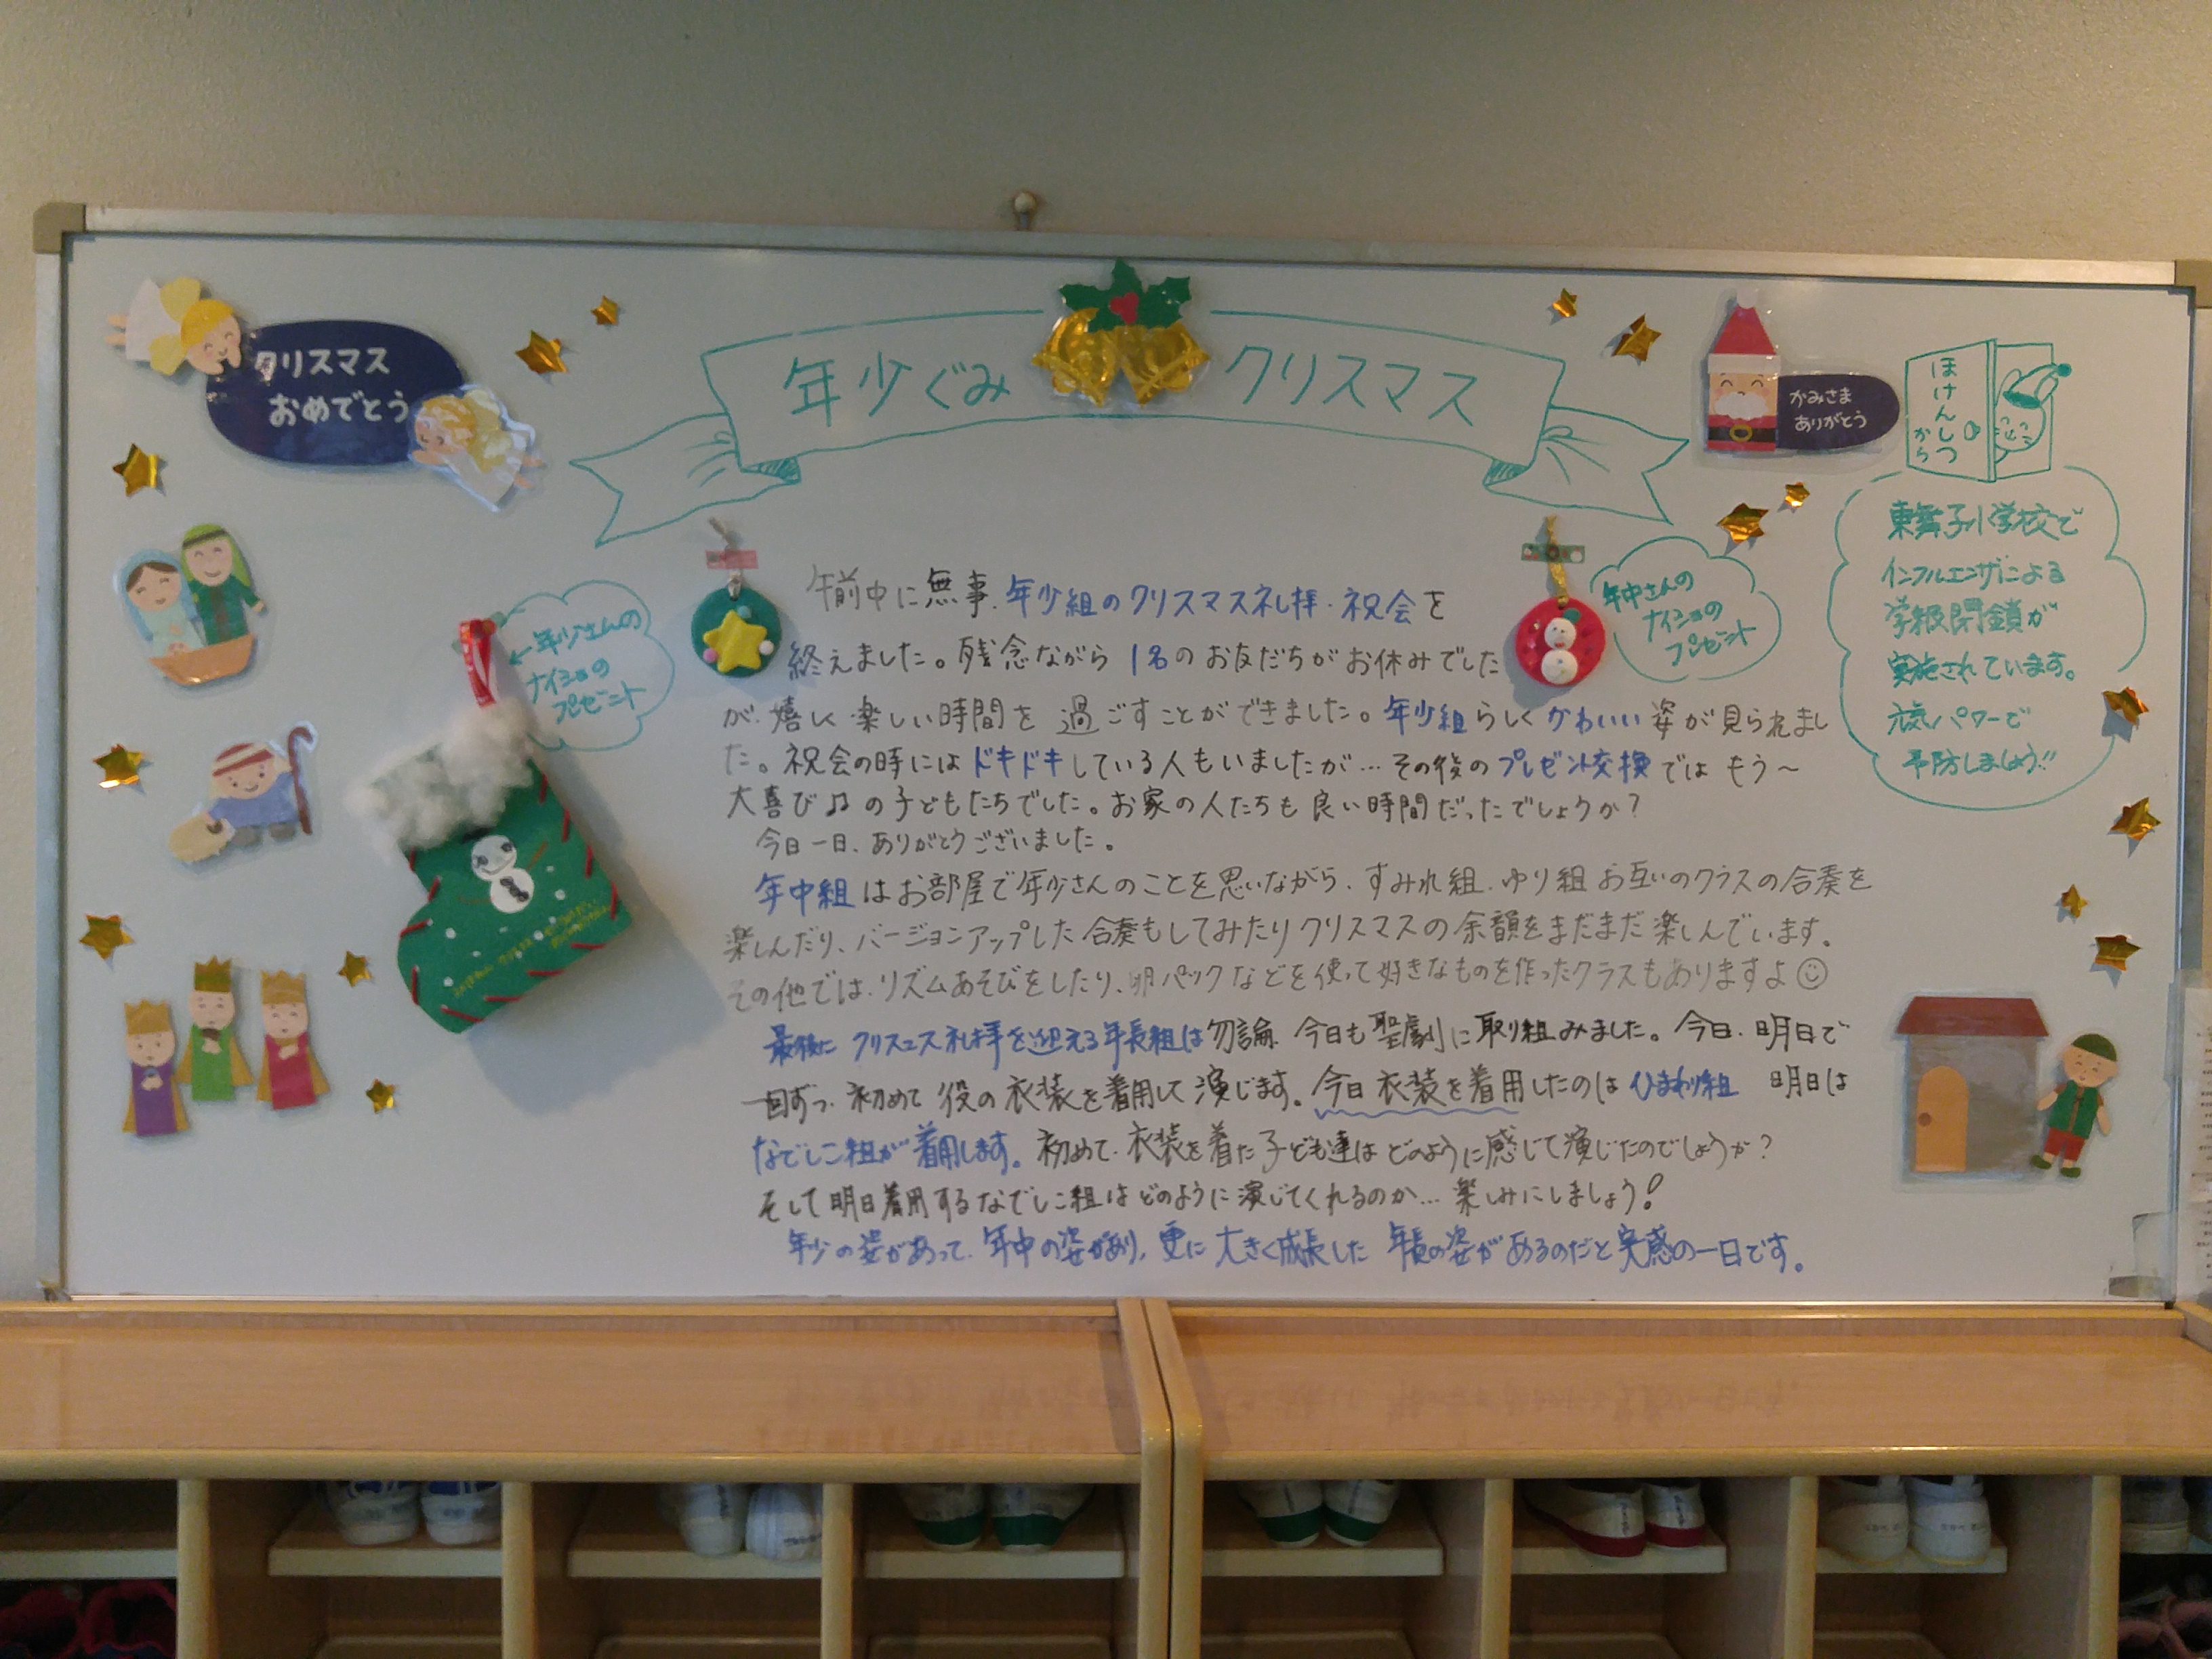 クリスマス
おめでとう
年少ぐみ クリスマス
かみさま
ありがとう
ほけんしつ
から
東舞子小学校で
インフルエンザによる
学級閉鎖が
実施されています。
元気パワーで
予防しましょう!!
←年少さんの
ナイショの
プレゼント
年中さんの
ナイショの
プレゼント
午前中に無事、年少組のクリスマス礼拝・祝会を
終えました。残念ながら 1名のお友だちがお休みでした
が、嬉しく楽しい時間を過ごすことができました。年少組らしくかわいい姿が見られまし
た。祝会の時にはドキドキしている人もいましたが…その後のプレゼント交換ではもう〜
大喜び♫の子どもたちでした。お家の人たちも良い時間だったでしょうか?
今日一日、ありがとうございました。
年中組はお部屋で年少さんのことを思いながら、すみれ組、ゆり組お互いのクラスの合奏を
楽しんだり、バージョンアップした合奏もしてみたりクリスマスの余韻をまだまだ楽しんでいます。
その他では、リズムあそびをしたり、卵パックなどを使って好きなものを作ったクラスもありますよ☺
最後に クリスマス礼拝を迎える年長組は勿論、今日も聖劇に取り組みました。今日、明日で
一回ずつ、初めて役の衣装を着用して演じます。今日衣装を着用したのはひまわり組 明日は
なでしこ組が着用します。初めて、衣装を着た子ども達はどのように感じて演じたのでしょうか?
そして明日着用するなでしこ組はどのように演じてくれるのか…楽しみにしましょう!
年少の姿があって、年中の姿があり、更に大きく成長した 年長の姿があるのだと実感の一日です。